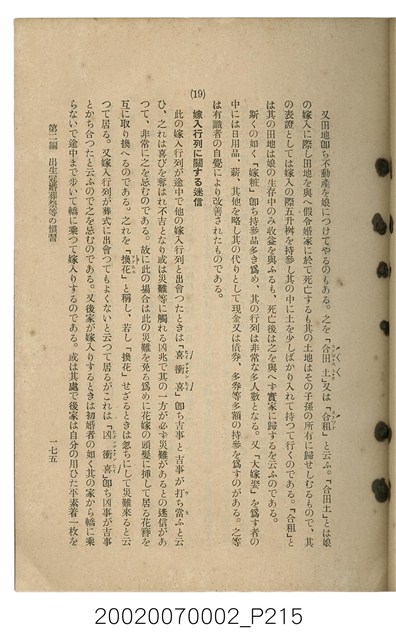 又田地卽ち不動產を娘につけてやるのもある。之を「合田土」又は「合租」と云ふ。「合田土」とは娘
の嫁入に際し田地を與へ假令婚家に於て死亡するも其の土地はその子孫の所有に歸せしむるもので、其
の表證としては嫁入の際五升桝を持參し其の中に土を少しばかり入れて持つて行くのである。「合租」と
は其の田地は娘の生存中のみ收益を與ふるも、死亡後は之を與へず實家に歸するを云ふのである。
斯くの如く「嫁粧」卽ち持參品多き爲め、其の行列は非常な多人數となる。又「大嫁娶」を爲す者の
中には日用品、薪、其他を略し其の代りとして現金又は債券、多劵等多額の持參を爲すのがある。之等
は有識者の自覺により改善されたものである。
(19)
嫁入行列に關する迷信
此の嫁入行列が途中で他の嫁入行列と出會つたときは「喜衝喜」卽ち吉事と吉事が打ち當ふと云
ひ、之れは喜びを奪はれ不吉となり或は災難等に觸れる凶兆で其の一方が必ず災難があるとの迷信があ
つて、非常に之を忌むのである。故に此の場合は此の災難を免る爲めに花嫁の頭髮に挿して居る花簪を
互に取り換へるのである。之れを「換花」と稱し、若し「換花」せざるときは忽ちにして災難來ると云
つて居る。又嫁入行列が葬式に出會つてもよくないと云つて居るがこれは「凶衝喜」卽ち凶事が吉事
とかち合つたと云ふので之を忌むのである。又後家が嫁入りするときは初婚者の如く其の家から轎に乘
らないで途中まで步いて轎に乘つて嫁入りするのである。或は其處で後家は自分の用ひた平素着一枚を
第二編 出生冠婚葬祭等の慣習
一七五
20020070002_P215